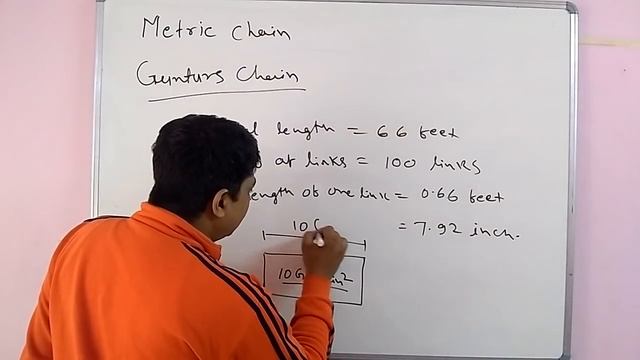 Metric Chain
Gunturs Chain
length = 66 feet
at links = 100 links
length of one link = 0.66 feet
= 7.92 inch.
10
10